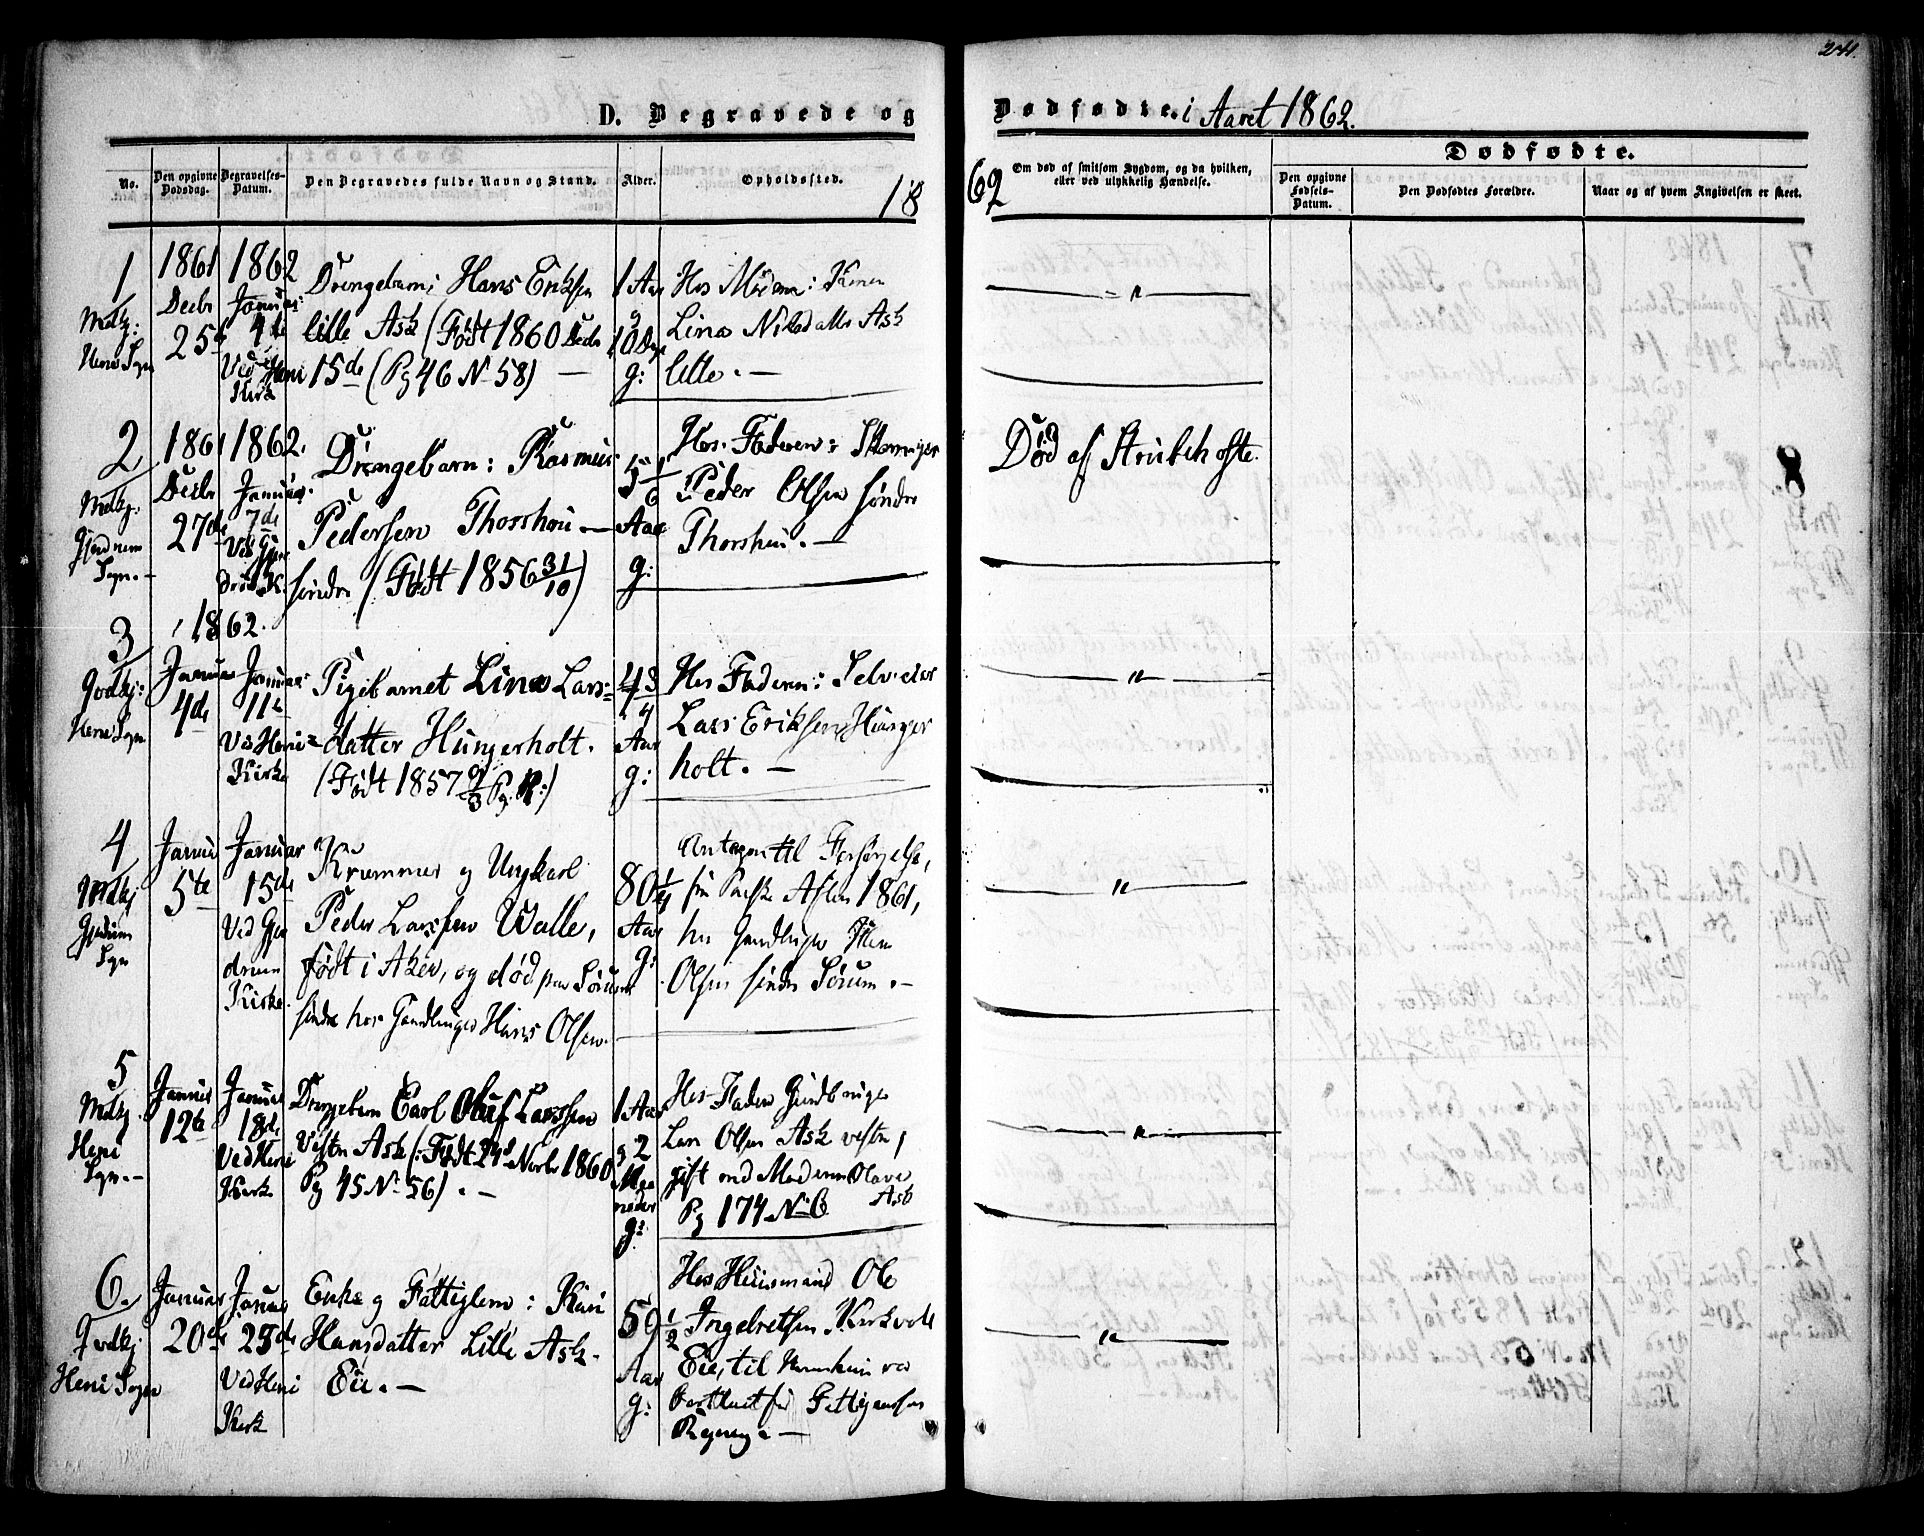 211.
D. Begravede og Dødfødte. i Aaret 1862.
No.
Den opgivne Dødsdag.
Begravelses-Datum.
Den Begravedes fulde Navn og Stand.
Alder.
Opholdssted.
Om død af smitsom Sygdom, og da hvilken,
eller ved ulykkelig Hændelse.
Dødfødte.
Den opgivne Fødsels-Datum.
Den Dødfødtes Forældre.
Naar og af hvem Angivelsen er skeet.
1862
1
Mdkj:
Heni Sogn
1861
Decbr
25de
1862
Januar:
4de
Ved Heni
Kirk
Drengebarn: Hans Eriksen
lille Ask (Født 1860 Decbr
15de (Pg 46 N 58) —
1 Aar
10 Dage
g:
Hos
Lina Ask
lille. —
— " —
2
Mdkj:
Gjerdrum
Sogn. —
1861
Decbr
27de
1862.
Januar:
7de
Ved Gjer
drum K.
Drengebarn: Rasmus
Pedersen Thorshoui —
søndre (Født 1856 31/10)
5 1/6
Aar
g:
Hos Faderen:
Peder Olsen søndre
Thorshui. —
Død af Strubehoste.
3
Qvdkj:
Heni Sogn
1862.
Januar
4de
Januar
11te
Ved Heni
Kirke
Pigebarnet Lina Lars-
datter Hungerholt.
(Født 1857 9/3 Pg.
4 3/4
Aar
g:
Hos Faderen: Selveier
Lars Eriksen Hunger
holt. —
— " —
4
Mdkj
Gjerdrum
Sogn
Januar
5te
Januar
15de
Ved Gjer
drum
Kirke.
og Ungkarl
Peder Larsen Walle,
født i Aker, og død paa Sørum
søndre hos Gaardbruger Hans Olsen.
80 1/4
Aar
g:
Antagen til Forsørgelse,
1861,
hos Gaardbruger Hans
Olsen søndre Sørum. —
— " —
5
Mdkj
Heni
Sogn. —
Januar
12te
Januar
18de
Ved Heni
Kirk
Drengebarn Carl Oluf Larssen
Vestre Ask (: Født 24de Novbr 1860
Pg 45 N 56). —
1 Aar
g 2
Maa
neder
g:
Hos Faderen Gaardbruger
Lars Olsen Ask vestre,
gift med Maren Olava
Ask
Pg 174 N 6
— " —
6.
Qvdkj
Heni Sogn
Januar
20de
Januar
25de
Ved Heni
Kirk
Enke og Fattiglem: Kari
Hansdatter Lille Ask-
Eie. —
59 1/2
Aar
g:
Hos Huusmand Ole
Ingebretsen Kirkvold
Eie, til
bortleiet for Fattigcassens
Regning —
— " —